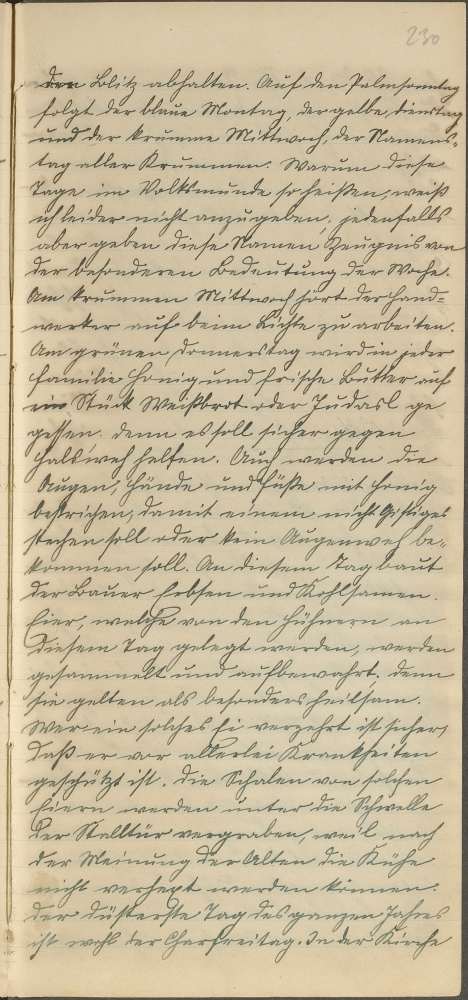 230
den Blitz abhalten. Auf den Palmsonntag
folgt der blaue Montag, der gelbe Dienstag
und der krumme Mittwoch, der Namens-
tag aller Krummen. Warum diese
Tage im Volksmunde so heißen, weiß
ich leider nicht anzugeben, jedenfalls
aber geben diese Namen Zeugnis von
der besonderen Bedeutung der Woche.
Am krummen Mittwoch hört der Hand-
werker auf beim Lichte zu arbeiten.
Am grünen Donnerstag wird in jeder
Familie Honig und frische Butter auf
ein Stück Weißbrot oder Judasl ge
gessen. denn es soll sicher gegen
Halsweh helfen. Auch werden die
Augen, Hände und Füße mit Honig
bestrichen, damit einem nicht Giftiges
stechen soll oder kein Augenweh be-
kommen soll. An diesem Tag baut
der Bauer Erbsen und Kohlsamen.
Eier, welche von den Hühnern an
diesem Tag gelegt werden, werden
gesammelt und aufbewahrt. denn
sie gelten als besonders heilsam.
Wer ein solches Ei verzehrt ist sicher,
daß er vor allerlei Krankheiten
geschützt ist. Die Schalen von solchen
Eiern werden unter die Schwelle
der Stalltür vergraben, weil nach
der Meinung der Alten die Kühe
nicht verhext werden können.
Der düsterste Tag des ganzen Jahres
ist wohl der Charfreitag. In der Kirche